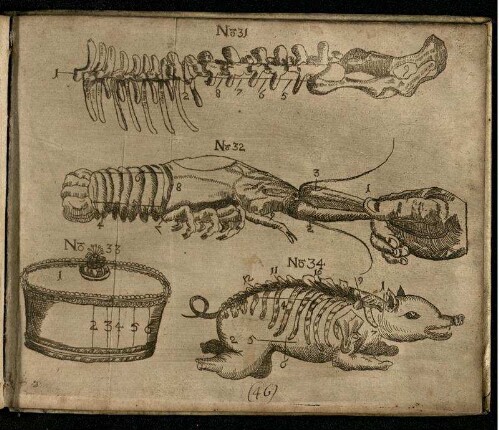 No 31
1 2 8 7 6 5
No 32
3 1
9 8
4 2
No 33
1
2 3 4 5 6
No 34
12 11 1
2 5 7
6
9
(46)